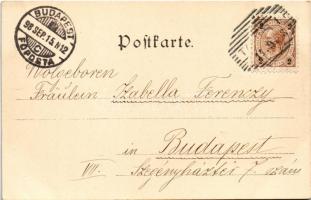 BUDAPEST
98 SEP. 15. N12
FŐPOSTA
Postkarte.
Wolgeboren
Fräulein Izabella Ferenczy
in Budapest
VII. Szegényháztér 7. szám